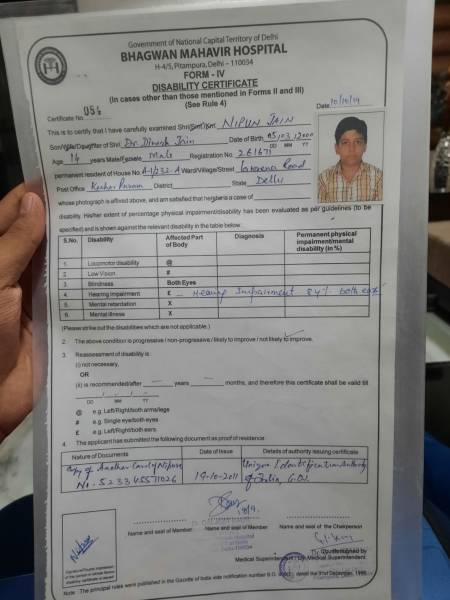 Government of National Capital Territory of Delhi
BHAGWAN MAHAVIR HOSPITAL
H-4/5, Pitampura, Delhi – 110034
FORM - IV
DISABILITY CERTIFICATE
(In cases other than those mentioned in Forms II and III)
(See Rule 4)
Certificate No. 054
Date 10/10/14
This is to certify that I have carefully examined Shri/Smt/Km. NIPUN JAIN
Son/Wife/Daughter of Shri Dr. Dinesh Jain Date of Birth 05/03/2000
DD MM YY
Age 14 years Male/Female Male Registration No. 261671
permanent resident of House No. A-1/232-A Ward/Village/Street Lawrence Road
Post Office Keshav Puram District State Delhi
whose photograph is affixed above, and am satisfied that he/she is a case of
disability. His/her extent of percentage physical impairment/disability has been evaluated as per guidelines (to be
specified) and is shown against the relevant disability in the table below :
S.No. Disability Affected Part of Body Diagnosis Permanent physical impairment/mental disability (in %)
1. Locomotor disability @
2. Low Vision #
3. Blindness Both Eyes
4. Hearing impairment £ Hearing Impairment 84% both ears
5. Mental retardation X
6. Mental illness X
(Please strike out the disabilities which are not applicable.)
2. The above condition is progressive / non-progressive / likely to improve / not likely to improve.
3. Reassessment of disability is :
(i) not necessary,
OR
(ii) is recommended/after — years — months, and therefore this certificate shall be valid till
DD MM YY
@ e.g. Left/Right/both arms/legs
# e.g. Single eye/both eyes
£ e.g. Left/Right/both ears
4. The applicant has submitted the following document as proof of residence :
Nature of Documents Date of Issue Details of authority issuing certificate
Copy of Aadhar Card of Nipun
No. 19-10-2011 Unique Identification Authority
of India, G.O.I.
Name and seal of Member Name and seal of Member Name and seal of the Chairperson
Countersigned by
Medical Superintendent
Note : The principal rules were published in the Gazette of India vide notification number dated the 31st December, 1996.